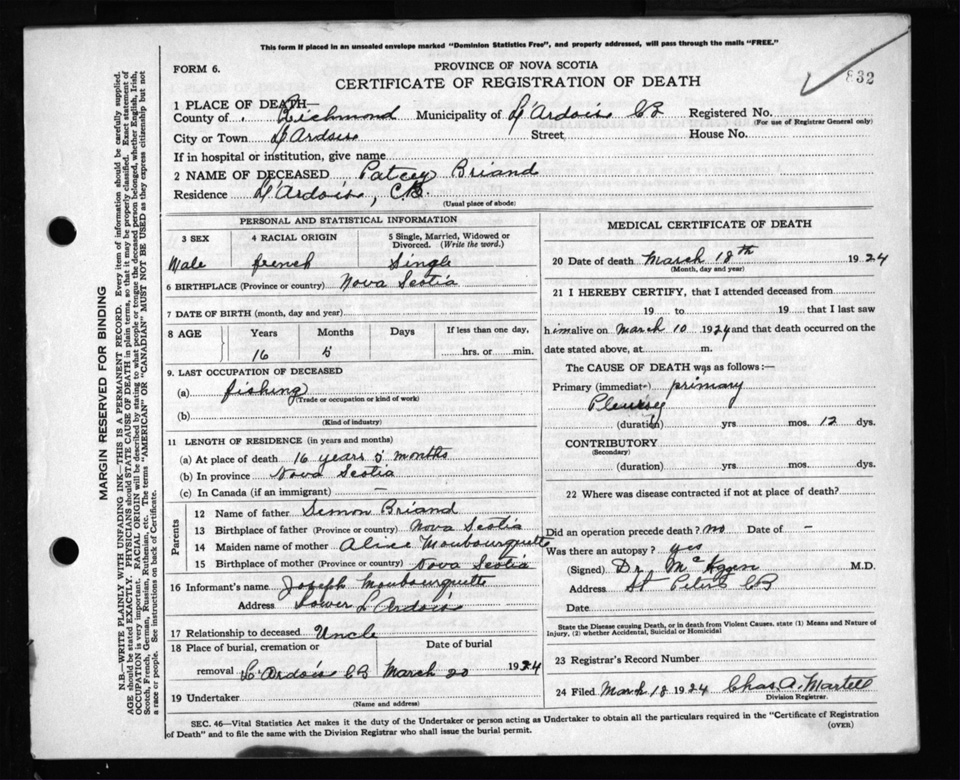 This form if placed in an unsealed envelope marked "Dominion Statistics Free", and properly addressed, will pass through the mails "FREE."
832
FORM 6.
PROVINCE OF NOVA SCOTIA
CERTIFICATE OF REGISTRATION OF DEATH
1 PLACE OF DEATH—
County of Richmond Municipality of L'Ardoise CB Registered No.
(For use of Registrar General only)
City or Town L'Ardoise Street House No.
If in hospital or institution, give name
2 NAME OF DECEASED Patcey Briand
Residence L'Ardoise, C.B.
(Usual place of abode)
PERSONAL AND STATISTICAL INFORMATION
3 SEX 4 RACIAL ORIGIN 5 Single, Married, Widowed or Divorced. (Write the word.)
Male french Single
6 BIRTHPLACE (Province or country) Nova Scotia
7 DATE OF BIRTH (month, day and year)
8 AGE Years Months Days If less than one day,
16 5 hrs. or min.
9. LAST OCCUPATION OF DECEASED
(a) fishing
(Trade or occupation or kind of work)
(b)
(Kind of industry)
11 LENGTH OF RESIDENCE (in years and months)
(a) At place of death 16 years 5 months
(b) In province Nova Scotia
(c) In Canada (if an immigrant) —
Parents
12 Name of father Simon Briand
13 Birthplace of father (Province or country) Nova Scotia
14 Maiden name of mother Alice Moubourquette
15 Birthplace of mother (Province or country) Nova Scotia
16 Informant's name Joseph Moubourquette
Address Lower L'Ardoise
17 Relationship to deceased Uncle
18 Place of burial, cremation or Date of burial
removal L'Ardoise CB March 20 1924
19 Undertaker
(Name and address)
MEDICAL CERTIFICATE OF DEATH
20 Date of death March 18th 1924
(Month, day and year)
21 I HEREBY CERTIFY, that I attended deceased from
19 to 19 that I last saw
him alive on March 10 1924 and that death occurred on the
date stated above, at m.
The CAUSE OF DEATH was as follows:—
Primary (immediate) primary
Pleurisy
(duration) yrs. mos. 12 dys.
CONTRIBUTORY
(Secondary)
(duration) yrs. mos. dys.
22 Where was disease contracted if not at place of death?
Did an operation precede death? no Date of —
Was there an autopsy? yes
(Signed) Dr M.D.
Address St Peters CB
Date
State the Disease causing Death, or in death from Violent Causes, state (1) Means and Nature of Injury, (2) whether Accidental, Suicidal or Homicidal
23 Registrar's Record Number
24 Filed March 18 1924 Chas. A. Martell
Division Registrar.
SEC. 46—Vital Statistics Act makes it the duty of the Undertaker or person acting as Undertaker to obtain all the particulars required in the "Certificate of Registration
of Death" and to file the same with the Division Registrar who shall issue the burial permit.
(OVER)
MARGIN RESERVED FOR BINDING
N.B.—WRITE PLAINLY WITH UNFADING INK—THIS IS A PERMANENT RECORD. Every item of information should be carefully supplied.
AGE should be stated EXACTLY. PHYSICIANS should STATE CAUSE OF DEATH in plain terms, so that it may be properly classified. Exact statement of
OCCUPATION is very important. RACIAL ORIGIN will be described by stating to what people or tongue the deceased person belonged, whether English, Irish,
Scotch, French, German, Russian, Ruthenian, etc. The terms "AMERICAN" or "CANADIAN" MUST NOT BE USED as they express citizenship but not
a race or people. See instructions on back of Certificate.